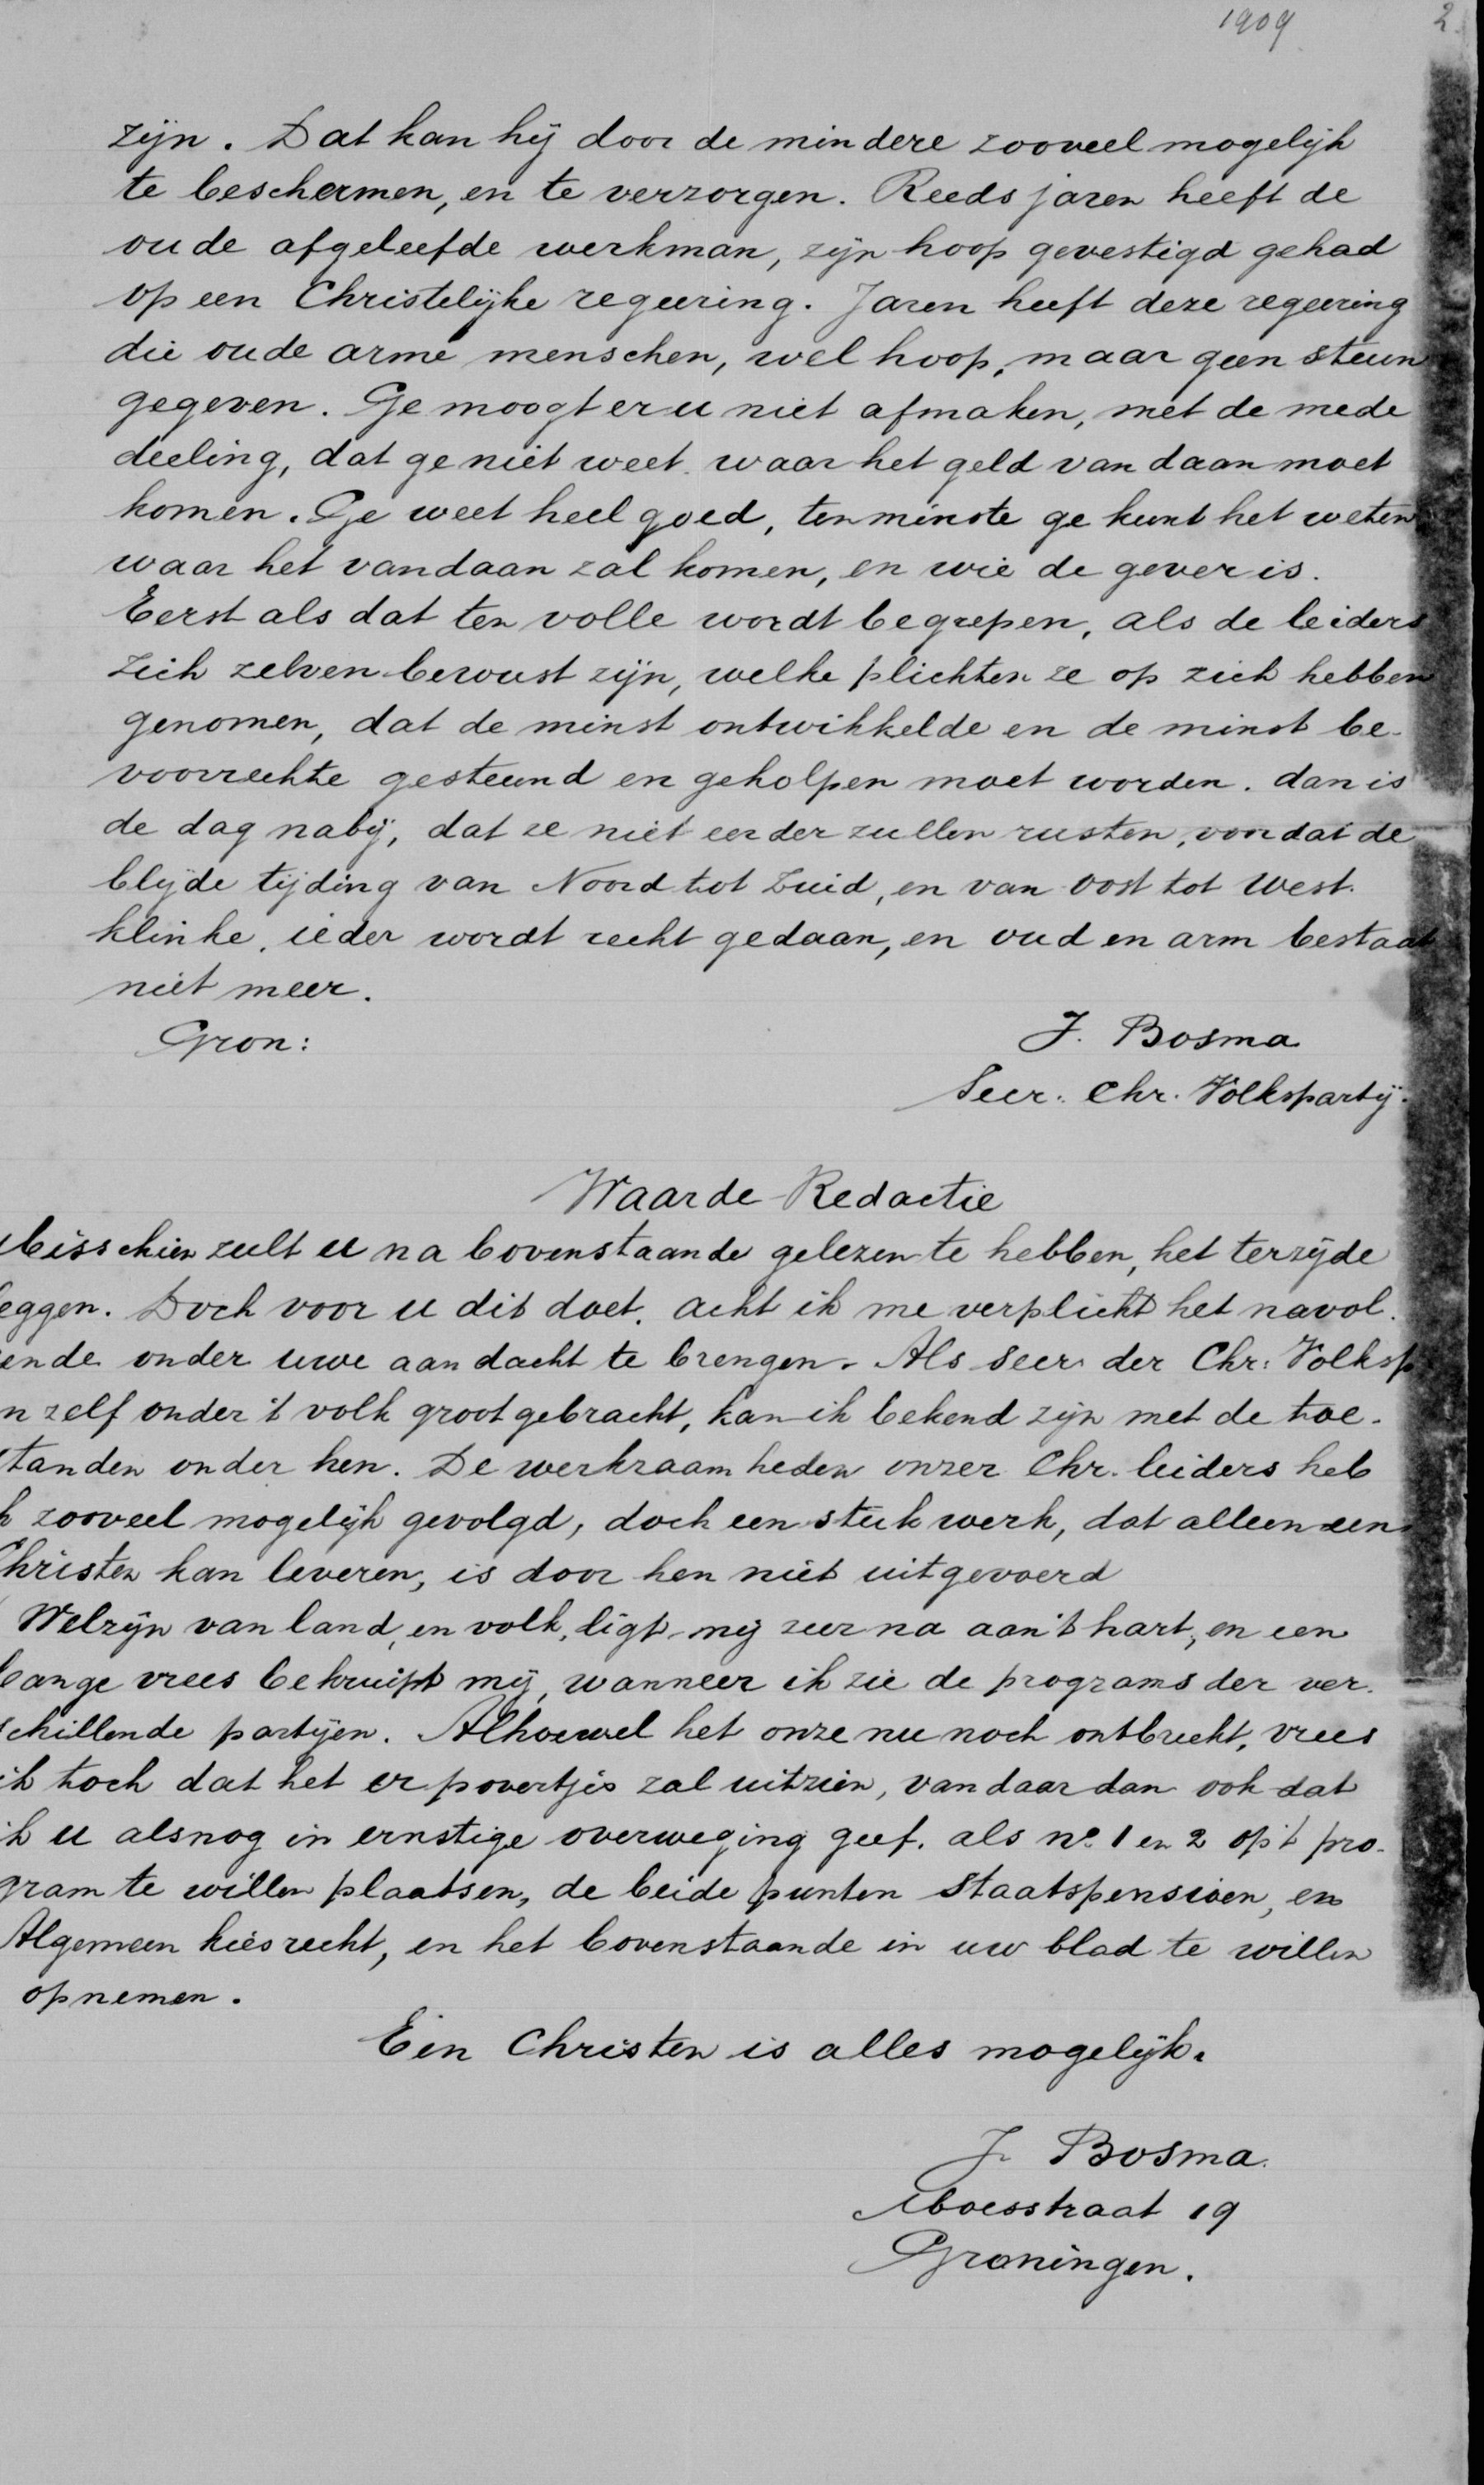 1909 2.
zijn. Dat kan hij door de mindere zooveel mogelijk
te beschermen, en te verzorgen. Reeds jaren heeft de
oude afgeleefde werkman, zijn hoop gevestigd gehad
op een Christelijke regeering. Jaren heeft deze regeering
die oude arme menschen, wel hoop, maar geen steun
gegeven. Ge moogt er u niet afmaken, met de mede
deeling, dat ge niet weet waar het geld van daan moet
komen. Ge weet heel goed, tenminste ge kunt het weten
waar het vandaan zal komen, en wie de gever is.
Eerst als dat ten volle wordt begrepen, als de leiders
zich zelven bewust zijn, welke plichten ze op zich hebben
genomen, dat de minst ontwikkelde en de minst be-
voorrechte gesteund en geholpen moet worden. dan is
de dag nabij, dat ze niet eerder zullen rusten, voordat de
blijde tijding van Noord tot Zuid, en van oost tot West.
klinke, ieder wordt recht gedaan, en oud en arm bestaat
niet meer.
Gron:
J. Bosma
Secr. Chr. Volkspartij.
Waarde Redactie
Misschien zult u na bovenstaande gelezen te hebben, het terzijde
leggen. Doch voor u dit doet. acht ik me verplicht het navol.
ende onder uwe aandacht te brengen. Als Secr. der Chr: Volksp
n zelf onder 't volk grootgebracht, kan ik bekend zijn met de toe-
standen onder hen. De werkzaamheden onzer Chr. leiders heb
k zooveel mogelijk gevolgd, doch een stuk werk, dat alleen een
Christen kan leveren, is door hen niet uitgevoerd
Welzijn van land, en volk, ligt mij zeer na aan 't hart, en een
bange vrees bekruipt mij, wanneer ik zie de programs der ver.
schillende partijen. Alhoewel het onze nu noch ontbreekt, vrees
ik toch dat het er povertjes zal uitzien, vandaar dan ook dat
ik u alsnog in ernstige overweging geef. als no. 1 en 2 op 't pro-
gram te willen plaatsen, de beide punten Staatspensioen, en
Algemeen kiesrecht, en het bovenstaande in uw blad te willen
opnemen.
Een Christen is alles mogelijk.
J. Bosma.
Moesstraat 19
Groningen.